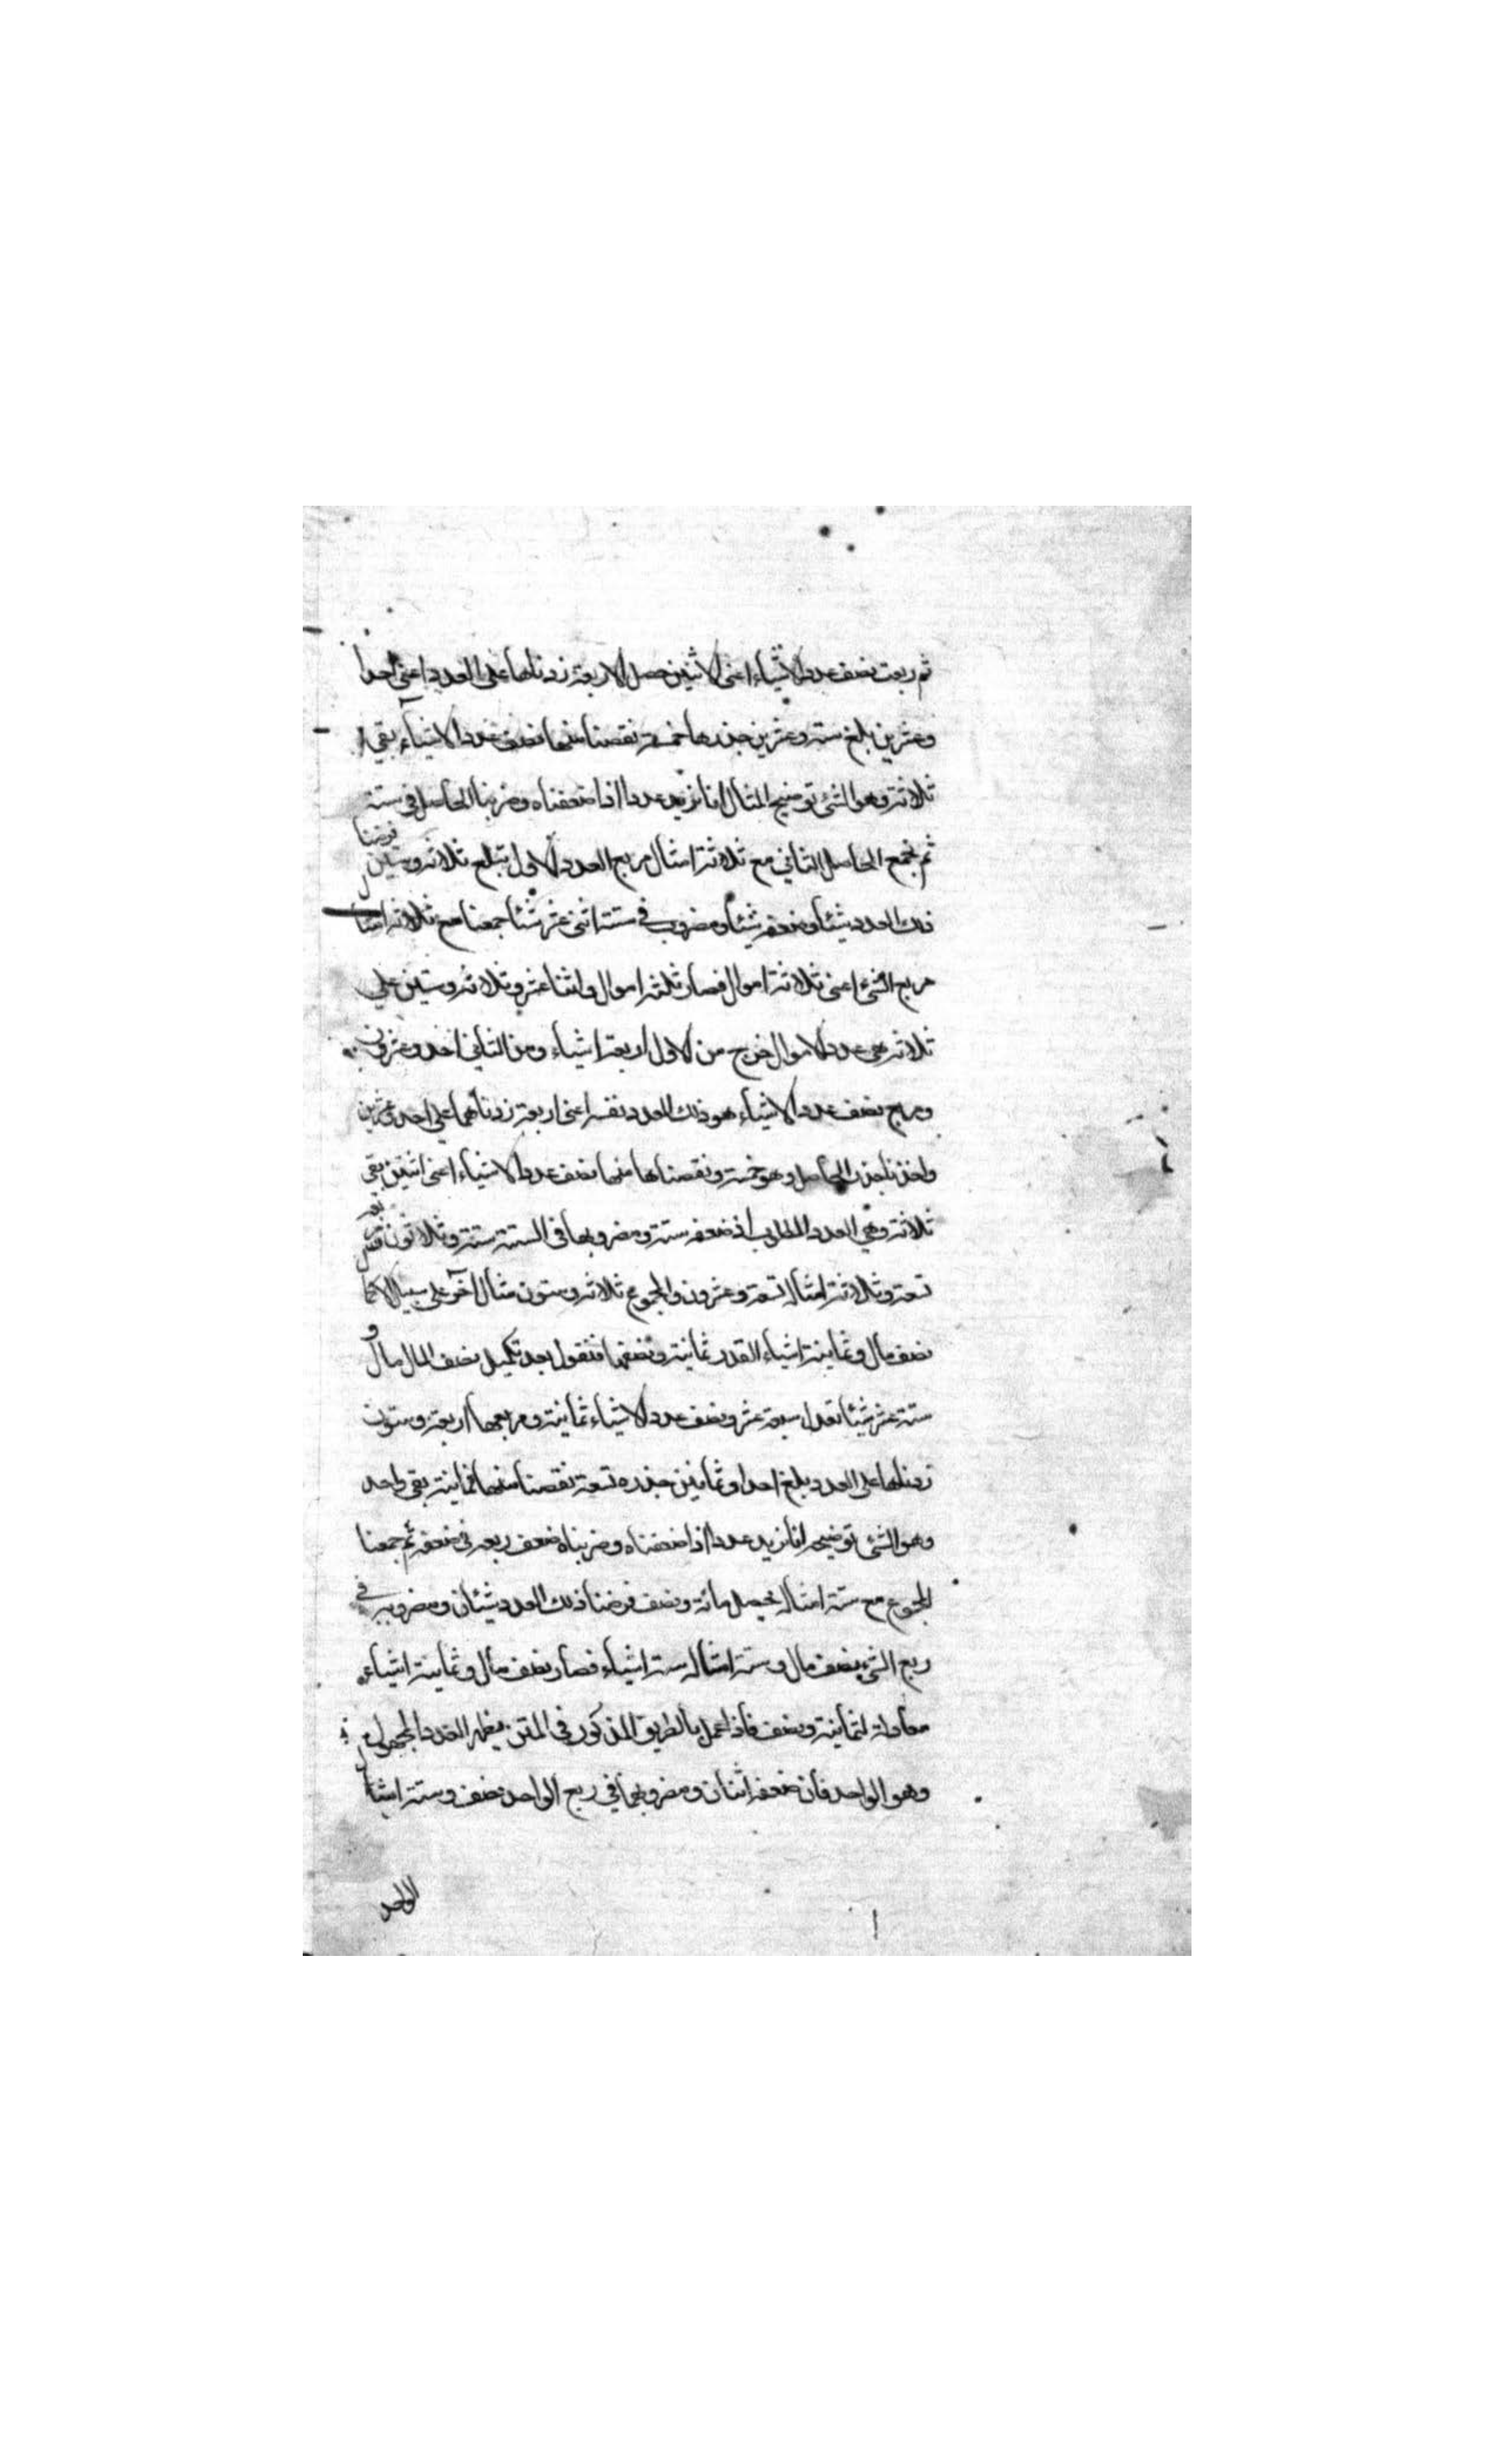 ثم ربعت نصف عدد الاشياء اعنى الاثنين حصل الاربعة زدناها على العدد اعنى احدا
وعشرين بلغ خمسة وعشرين جذرها خمسة نقصنا منها نصف عدد الاشياء بقى
ثلاثة وهو الشئ توضيح المثال انا نريد عددا اذا ضعفناه وضربنا الحاصل في ستة
ثم نجمع الحاصل الثاني مع ثلاثة امثال مربع العدد الاول تبلغ ثلاثة وستين فرضنا
ذلك العدد شيئا وضعفه شيئا ومضروب في ستة اثنى عشر شيئا جمعنا مع ثلاثة امثال
مربع الشئ اعنى ثلاثة اموال فصار ثلثة اموال واثنا عشر وثلاثة وستين على
ثلاثة هي عدد الاموال خرج من الاول اربعة اشياء ومن الثاني احد وعشرون
ومربع نصف عدد الاشياء هو ذلك العدد نفسه اعنى اربعة زدناهما على احد وعشرين
واخذنا جذر الحاصل وهو خمسة ونقصناها منها نصف عدد الاشياء اعنى اثنين بقى
ثلاثة وهي العدد المطلوب اذ ضعفه ستة ومضروبها في الستة ستة وثلاثون
تسعة وثلاثة امثاله تسعة وعشرون والمجموع ثلاثة وستون مثال آخر على سبيل الاكمال
نصف مال وثمانية اشياء القدر ثمانية ونصفها فنقول بعد تكميل نصف المال مال و
ستة عشر شيئا تعدل سبعة عشر ونصف عدد الاشياء ثمانية ومربعها اربعة وستون
زدناها على العدد بلغ احدا وثمانين جذره تسعة نقصنا منها ثمانية بقى واحد
وهو الشئ توضيحه انا نريد عددا اذا ضعفناه وضربناه ضعف ربعه في ضعفه ثم جمعنا
المجموع مع ستة امثاله يحصل مائة ونصف فرضنا ذلك العدد شيئان ومضروبه في
ربع الشئ نصف مال وستة امثاله ستة اشياء فصار نصف مال وثمانية اشياء
معادلة لثمانية ونصف فاذا عمل بالطريق المذكور في المتن يظهر العدد المجهول
وهو الواحد فان ضعفه اثنان ومضروبهما في ربع الواحد نصف وستة امثال
الواحد